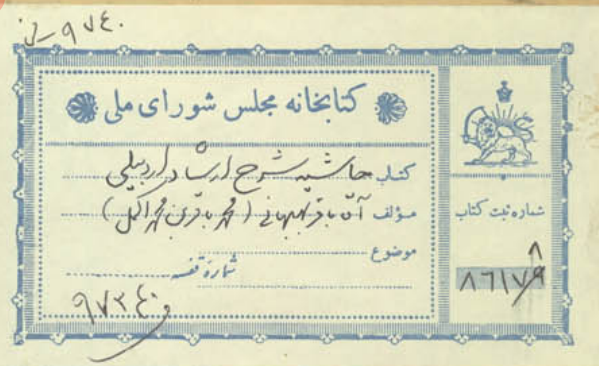 ۹۷۴۰
کتابخانه مجلس شورای ملی
کتاب حاشیه شرح ارشاد اردبیلی
مؤلف آقا باقر بهبهانی (محمد باقر بن محمد اکمل)
موضوع
شماره قفسه
۹۷۳۴۰
شماره ثبت کتاب
۸
۸۶۱۷۹